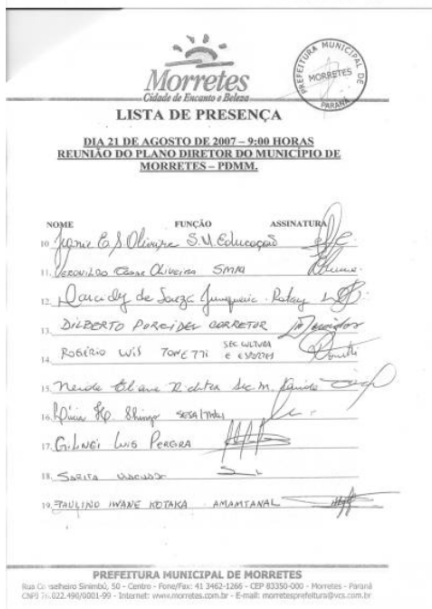 Morretes
Cidade de Encanto e Beleza
PREFEITURA MUNICIPAL DE
MORRETES
PARANÁ
LISTA DE PRESENÇA
DIA 21 DE AGOSTO DE 2007 – 9:00 HORAS
REUNIÃO DO PLANO DIRETOR DO MUNICÍPIO DE
MORRETES – PDMM.
NOME FUNÇÃO ASSINATURA
10. E. S. Oliveira S.M. Educação
11. Oliveira SMMA
12. Daraidy de Souza Junqueira - Rotary
13. DILBERTO PORCIDES CORRETOR
14. ROGÉRIO LUÍS TONETTI SEC CULTURA E ESPORTES
15. Neide Sec. M.
16. Shingo
17. GILNEI LUIS PEREIRA
18. SARITA
19. PAULINO IWANE KOTAKA AMAMTANAL
PREFEITURA MUNICIPAL DE MORRETES
Rua Conselheiro Sinimbú, 50 - Centro - Fone/Fax: 41 3462-1266 - CEP 83350-000 - Morretes - Paraná
.022.490/0001-99 - Internet: www.morretes.com.br - E-mail: morretesprefeitura@vcs.com.br